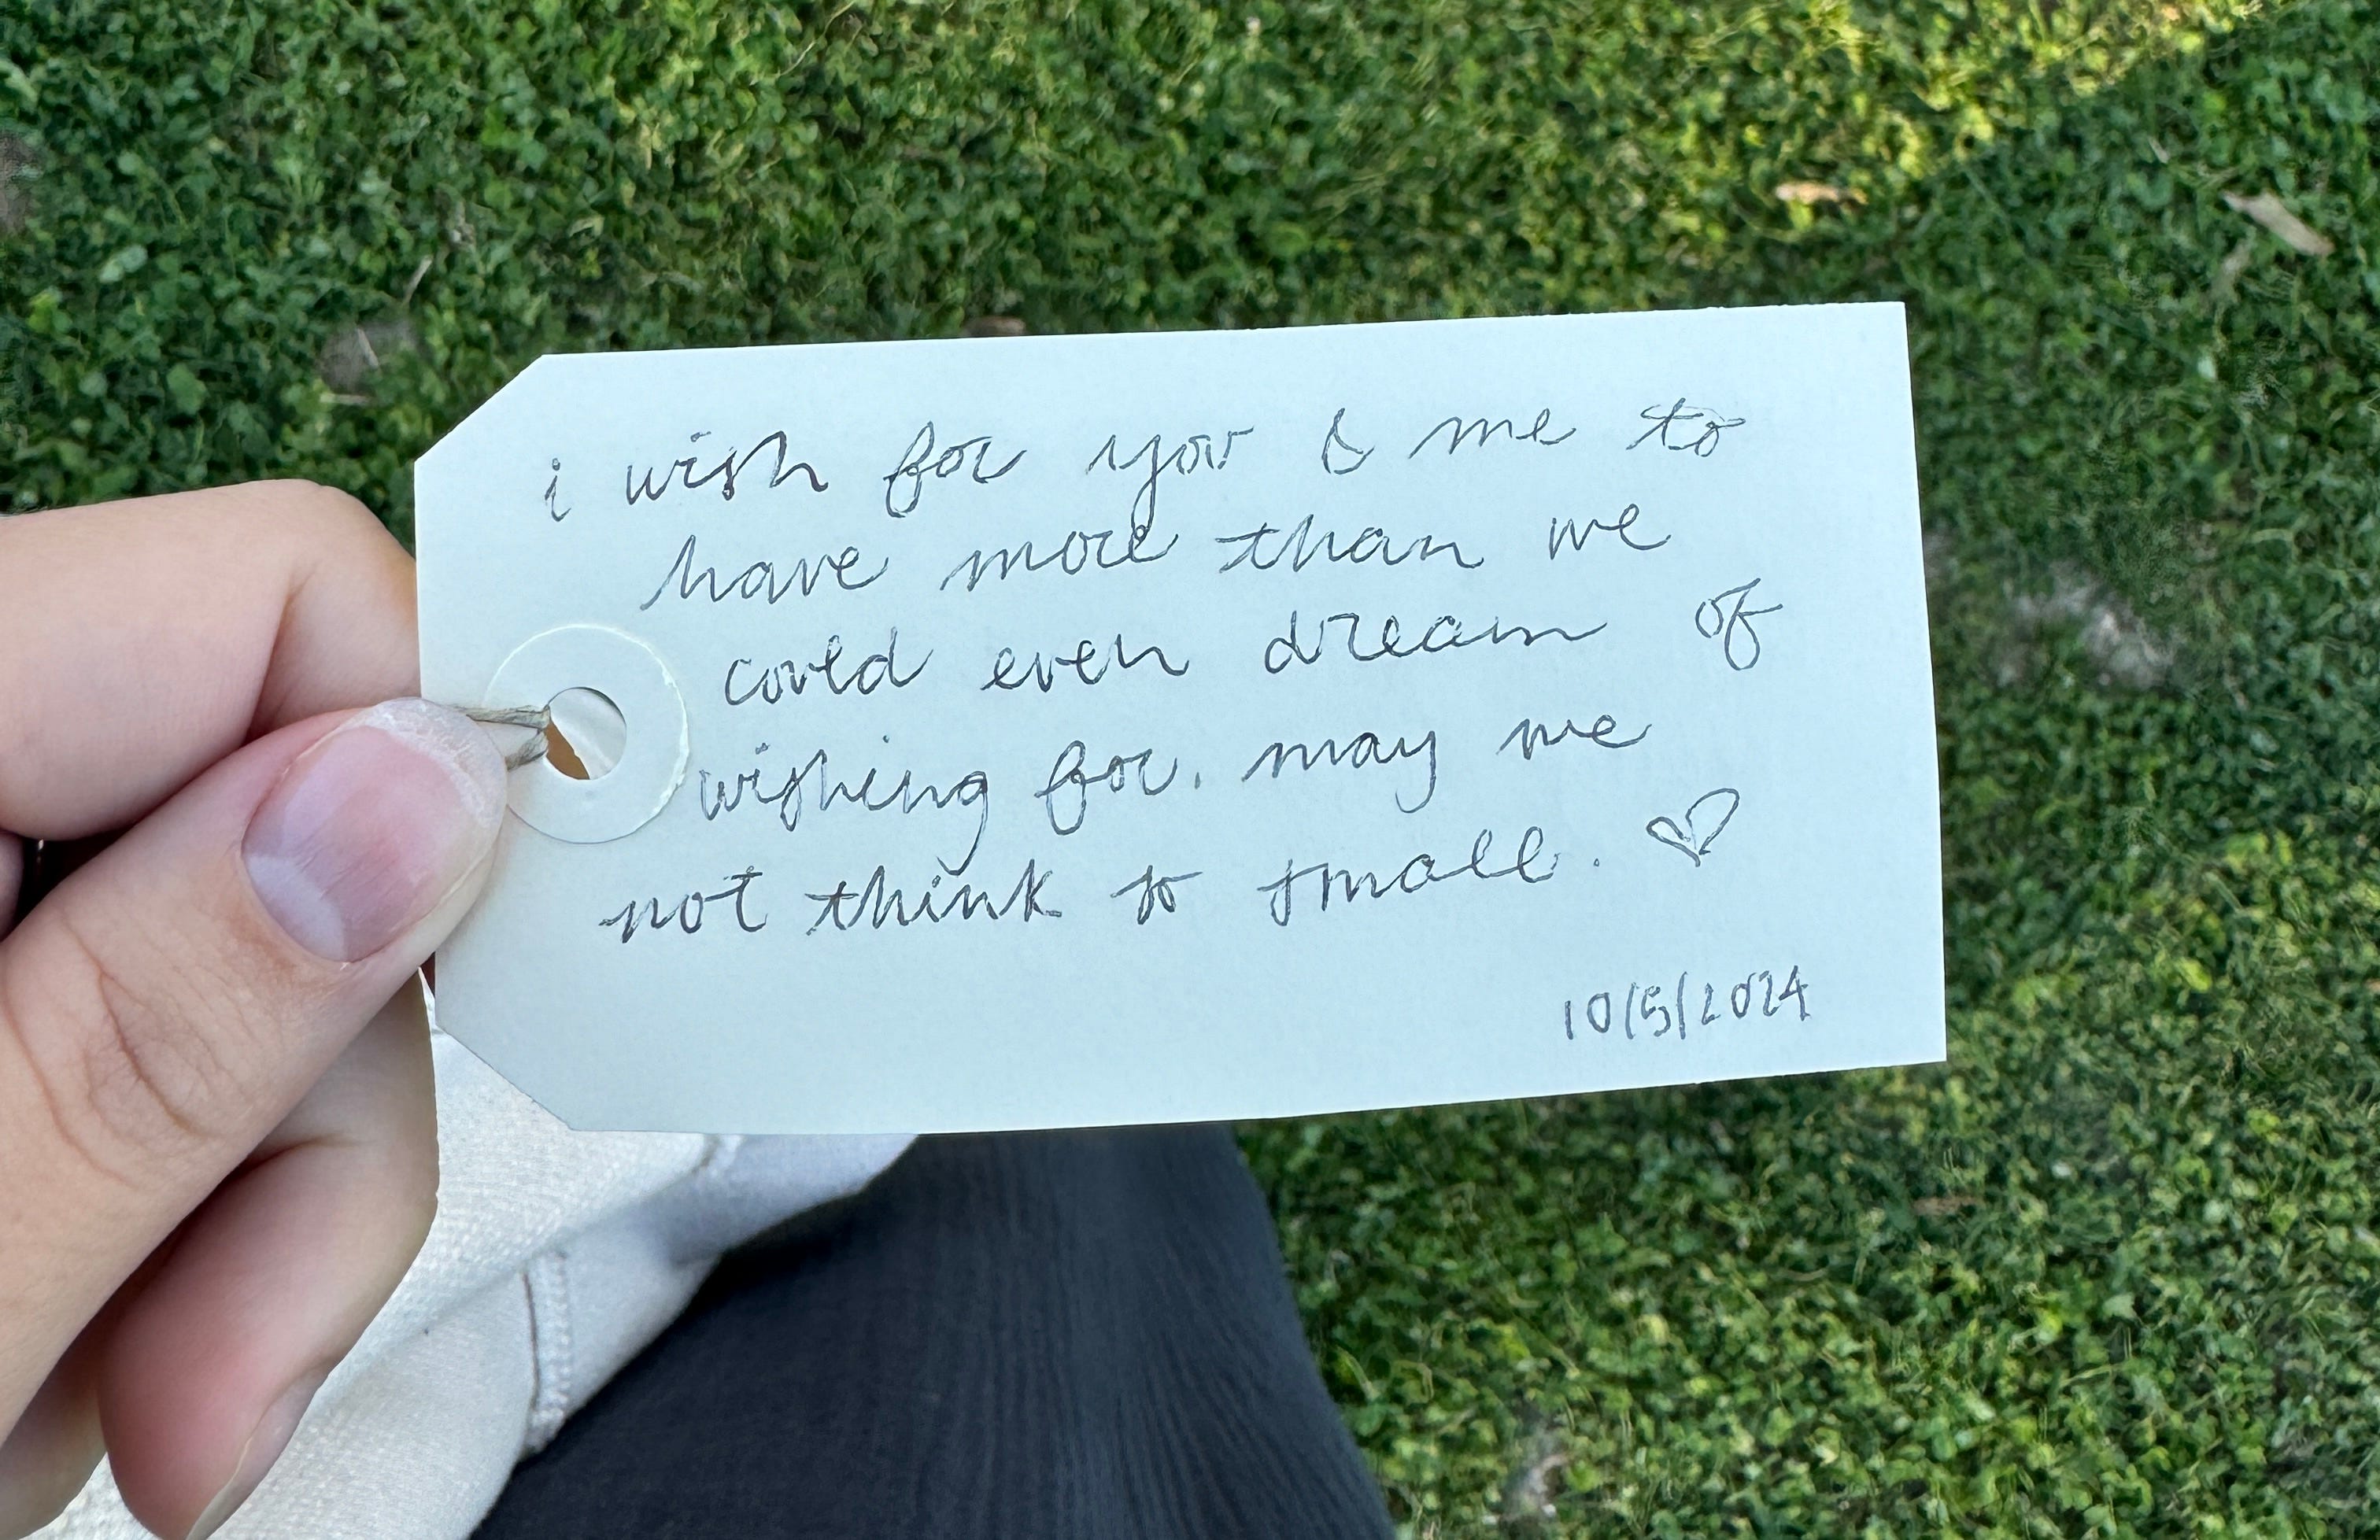 i wish for you & me to
have more than we
could even dream of
wishing for. may we
not think so small. ♡
10/5/2024